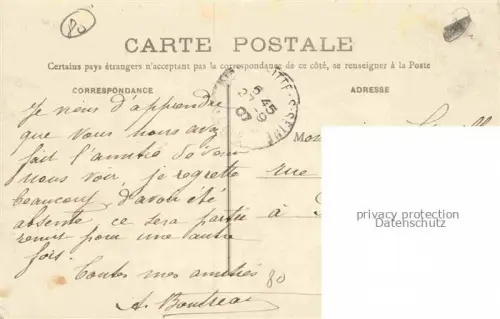 80
CARTE POSTALE
Certains pays étrangers n'acceptant pas la correspondance de ce côté, se renseigner à la Poste
CORRESPONDANCE
ADRESSE
Je viens d'apprendre
que vous nous avez
fait l'amitié de venir
nous voir je regrette
beaucoup d'avoir été
absente ce sera partie
remise pour une autre
fois.
Toutes mes amitiés
80
ITTE-S-SEINE
6 45
07
rue
à
privacy protection
Datenschutz